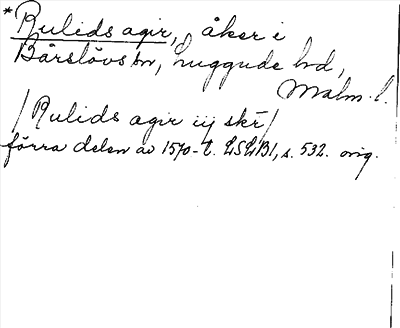 * Rulids agir, åker i
Bårslövs sn, Luggude hd,
Malm. l.
/Rulids agir iij skr/
förra delen av 1570-t. LSLB1, s. 532. orig.